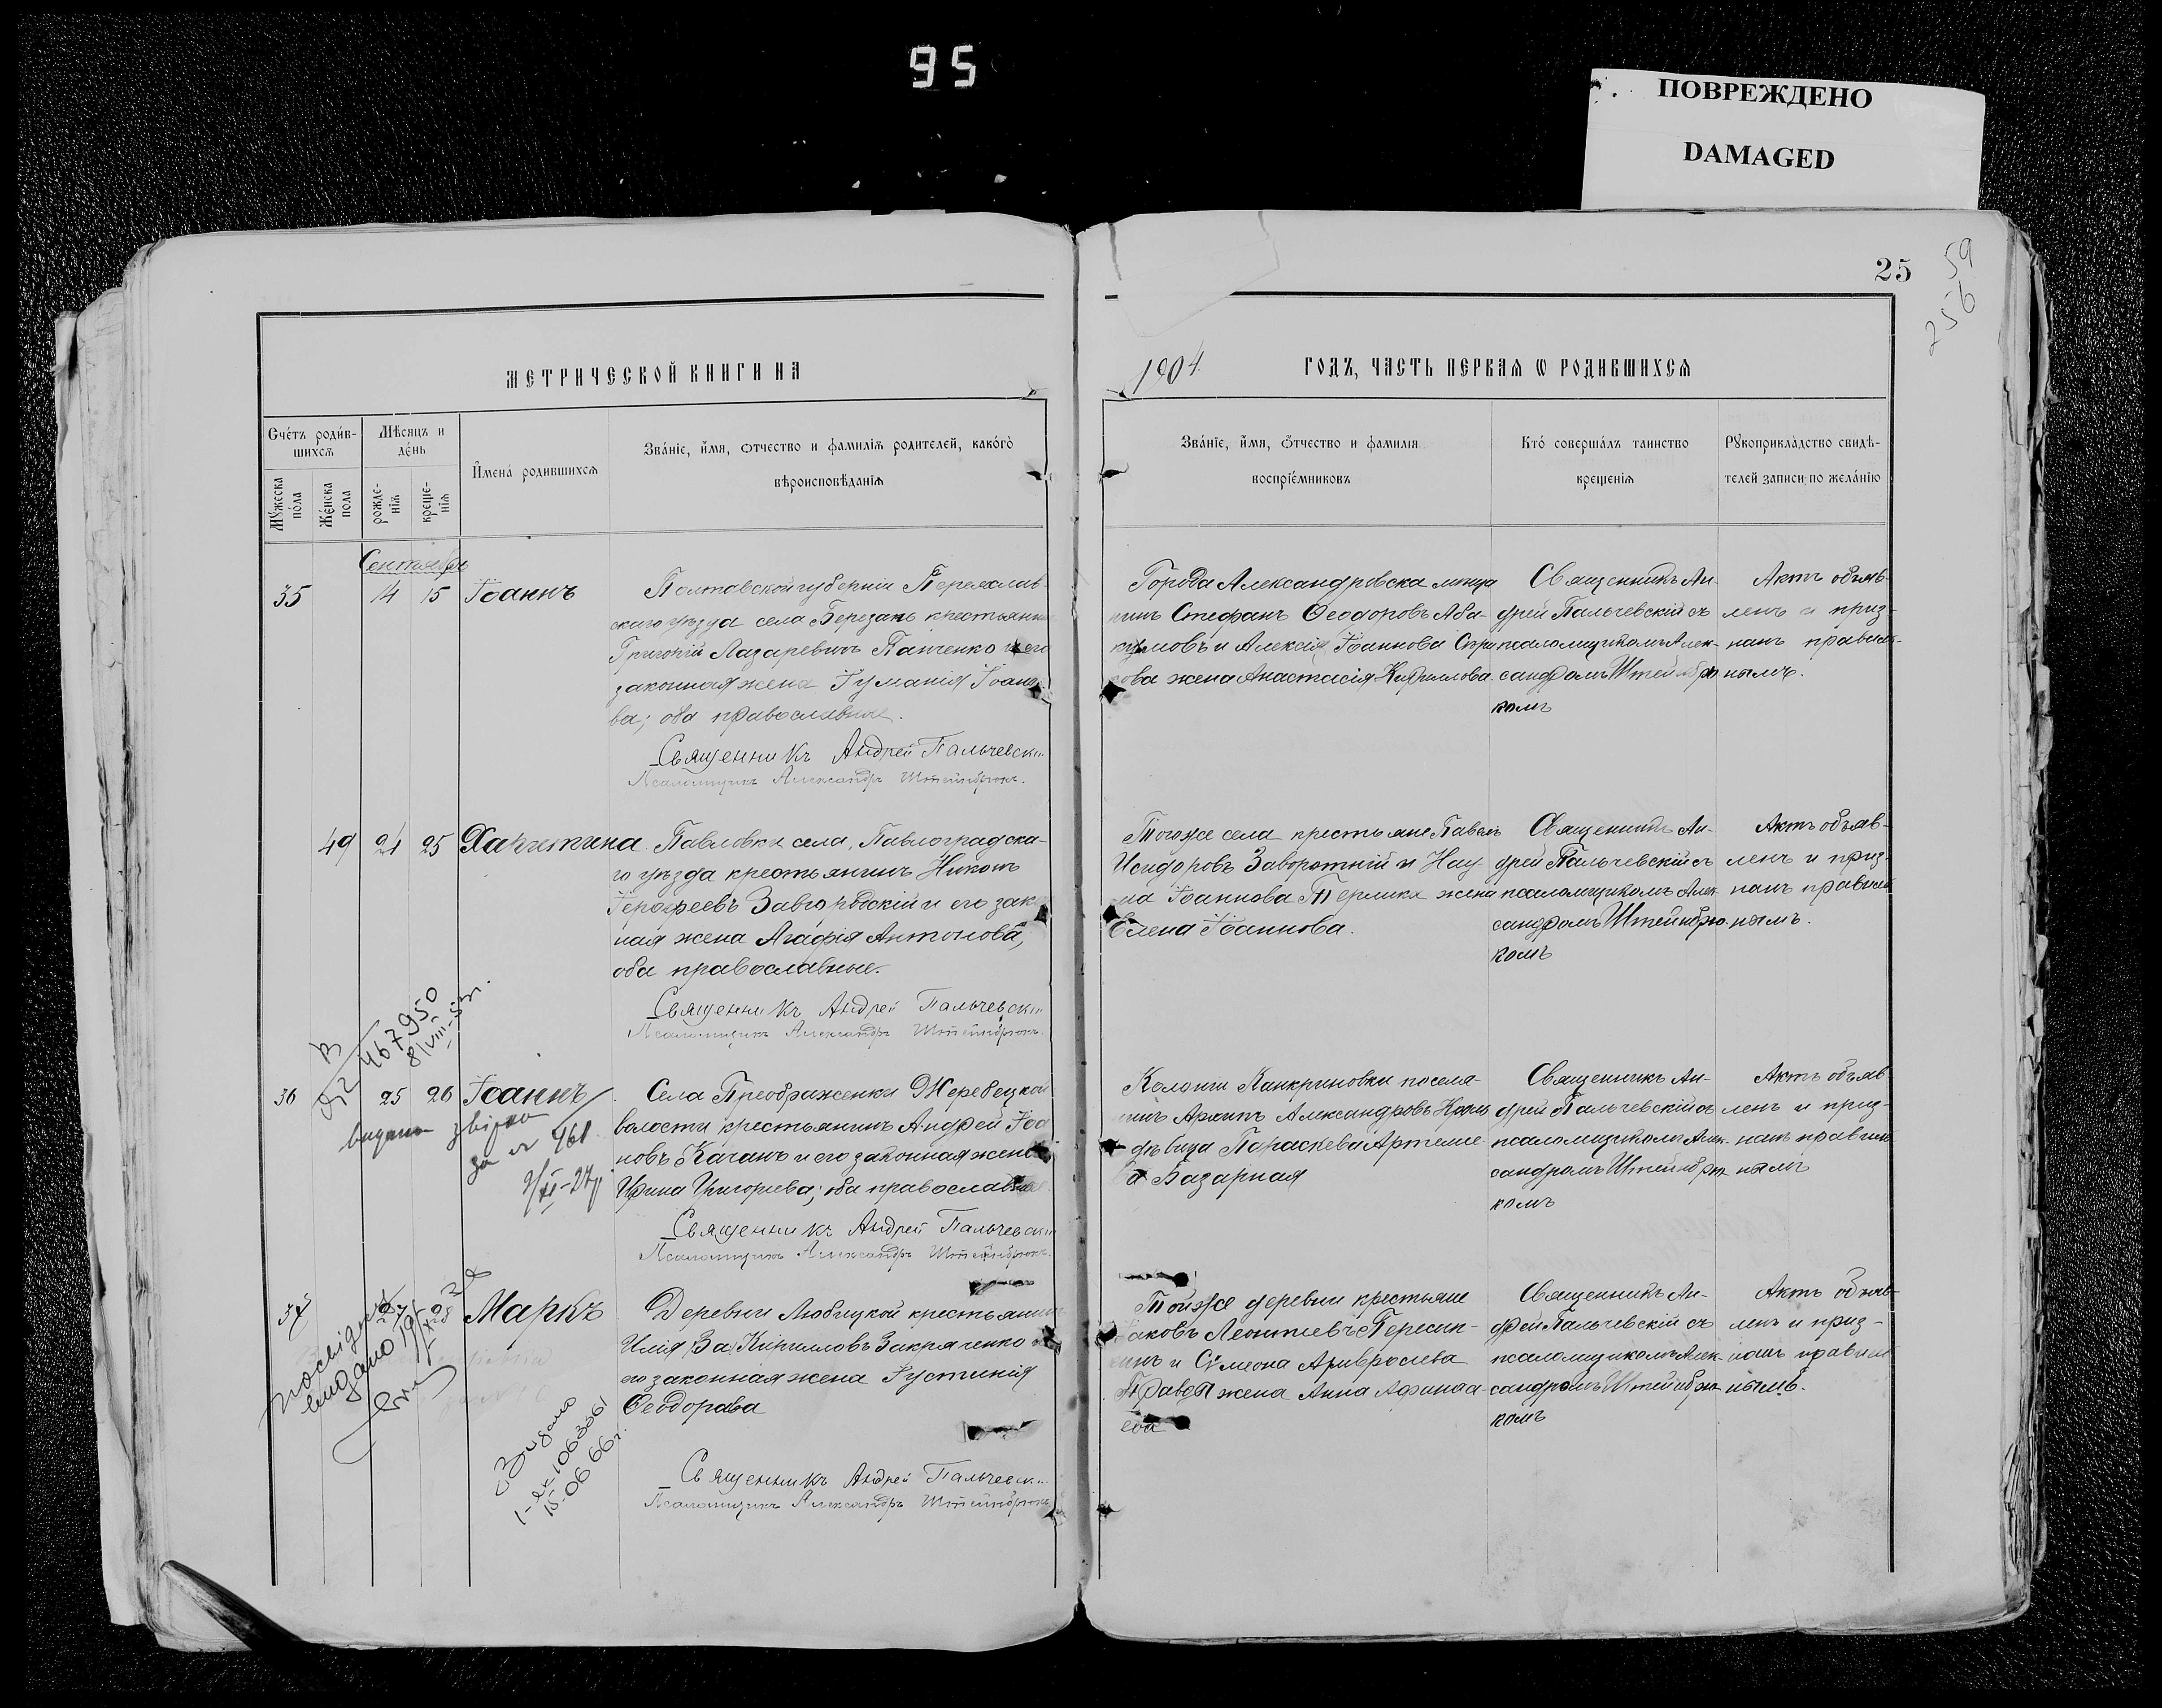 95
ПОВРЕЖДЕНО
DAMAGED
25
59
256
МЕТРИЧЕСКОЙ КНИГИ НА
1904
ГОДЪ, ЧАСТЬ ПЕРВАЯ Ѡ РОДИВШИХСЯ
Счетъ родив-
шихся
Мѣсяцъ и
день
Мужеска
пола
Женска
пола
рожде-
нія
креще-
нія
Имена родившихся
Званіе, имя, отчество и фамилія родителей, какого
вѣроисповѣданія
Званіе, имя, отчество и фамилія
воспріемниковъ
Кто совершалъ таинство
крещенія
Рукоприкладство свидѣ-
телей записи по желанію
Сентябрь
35 14 15 Іоаннъ
Полтавской губерніи Переяслав-
скаго уѣзда села Березань крестьянинъ
Григорій Лазаревъ Панченко и его
законная жена Іоано-
ва; оба православные.
Священникъ Андрей Пальчевскій
Псаломщикъ Александръ Штейнбрюкъ.
Города Александровска
нинъ Стефанъ Ѳеодоровъ Аба-
кумовъ и Алексія Іоаннова
жена Анастасія Кириллова.
Священникъ Ан-
дрей Пальчевскій съ
псаломщикомъ Алек-
сандромъ Штейнбрю-
комъ
Актъ объяв-
ленъ и приз-
нанъ правиль-
нымъ.
49 24 25 Харитина
Павловки села, Павлоградска-
го уѣзда крестьянинъ Никонъ
Іероѳеевъ Завгородскій и его закон
ная жена Агафія Антонова,
оба православные.
Священникъ Андрей Пальчевскій
Псаломщикъ Александръ Штейнбрюкъ.
Тогоже села крестьяне Павелъ
Исидоровъ Заворотній и Нау
ма Іоаннова жена
Елена Іоаннова.
Священникъ Ан-
дрей Пальчевскій съ
псаломщикомъ Алек-
сандромъ Штейнбрю-
комъ
Актъ объяв-
ленъ и приз-
нанъ правиль
нымъ.
467950
8/VIII-53г.
36 25 26 Іоаннъ
за № 461
Села Преображенки Жеребецкой
волости крестьянинъ Андрей Іоан
новъ Каганъ и его законная жена
Ирина Григорьева; оба православные
Священникъ Андрей Пальчевскій
Псаломщикъ Александръ Штейнбрюкъ.
Колоніи Канкриновки поселя-
нинъ Архипъ Александровъ
дѣвица Параскева Артемie
ва Базарная
Священникъ Ан-
дрей Пальчевскій съ
псаломщикомъ Алек-
сандромъ Штейнбрю-
комъ
Актъ объяв
ленъ и приз-
нанъ правиль
нымъ
37 27 28 Маркъ
видано
Деревни Любицкой крестьянинъ
Илія (За) Кирилловъ Закряченко и
его законная жена Іустинія
Ѳеодорова
Священникъ Андрей Пальчевскій
Псаломщикъ Александръ Штейнбрюкъ
1063661
15-06 66г.
Тойже деревни крестьяне
Іаковъ Леонтіевъ
и Сѵмеона Амвросіева
жена Анна Аѳанаси
ева
Священникъ Ан-
дрей Пальчевскій съ
псаломщикомъ Алек-
сандромъ Штейнбрю-
комъ
Актъ объяв-
ленъ и приз-
нанъ правиль
нымъ.